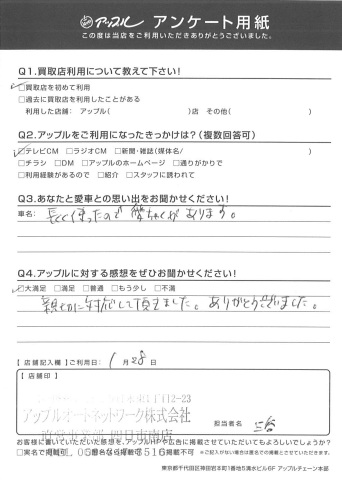 アップル アンケート用紙
この度は当店をご利用いただきありがとうございました。
Q1.買取店利用について教えて下さい!
□買取店を初めて利用
□過去に買取店を利用したことがある
利用した店舗: アップル( )店 その他( )
Q2.アップルをご利用になったきっかけは?(複数回答可)
□テレビCM □ラジオCM □新聞・雑誌(媒体名/ )
□チラシ □DM □アップルのホームページ □通りがかりで
□利用経験があるので □紹介 □スタッフに誘われて
Q3.あなたと愛車との思い出をお聞かせください!
車名:
長く使ったので愛ちゃくがあります。
Q4.アップルに対する感想をぜひお聞かせください!
□大満足 □満足 □普通 □もう少し □不満
親切に対応して頂きました。ありがとうございました。
【店舗記入欄】ご利用日: 1月28日
【店舗印】
アップルオートネットワーク株式会社
担当者名 三谷
お客様に書いていただいた感想を、アップルHPや広告に掲載させていただいてもよろしいでしょうか?
□実名で掲載可 □匿名なら掲載可 □掲載不可 ※ご記入がない場合は匿名での掲載とさせていただきます。
東京都千代田区神田岩本町1番地5清水ビル6F アップルチェーン本部